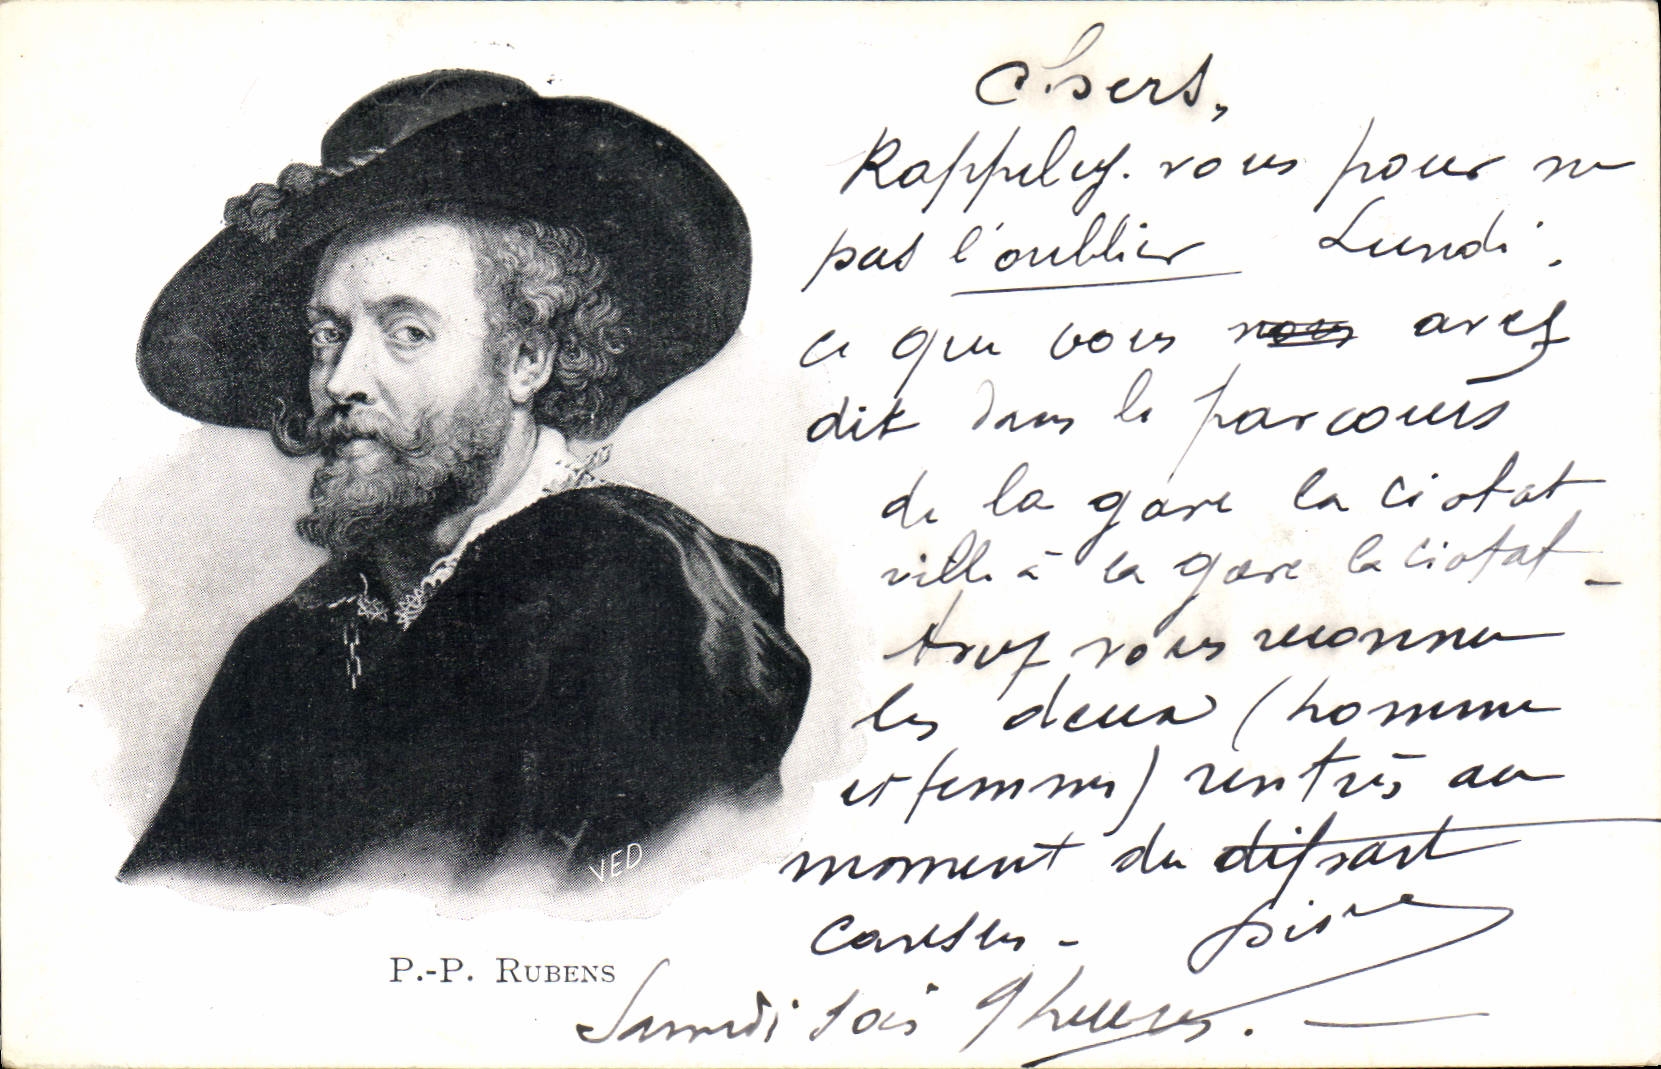 Chers,
Rappelez-vous pour ne
pas l'oublier Lundi,
ce que vous nous avez
dit dans le parcours
de la gare la Ciotat
ville à la gare la Ciotat -
Avez vous reconnu
les deux (homme
et femme) rentrés au
moment du départ
Caresses - Pierre
Samedi soir 9 heures. -
P.-P. RUBENS
VED